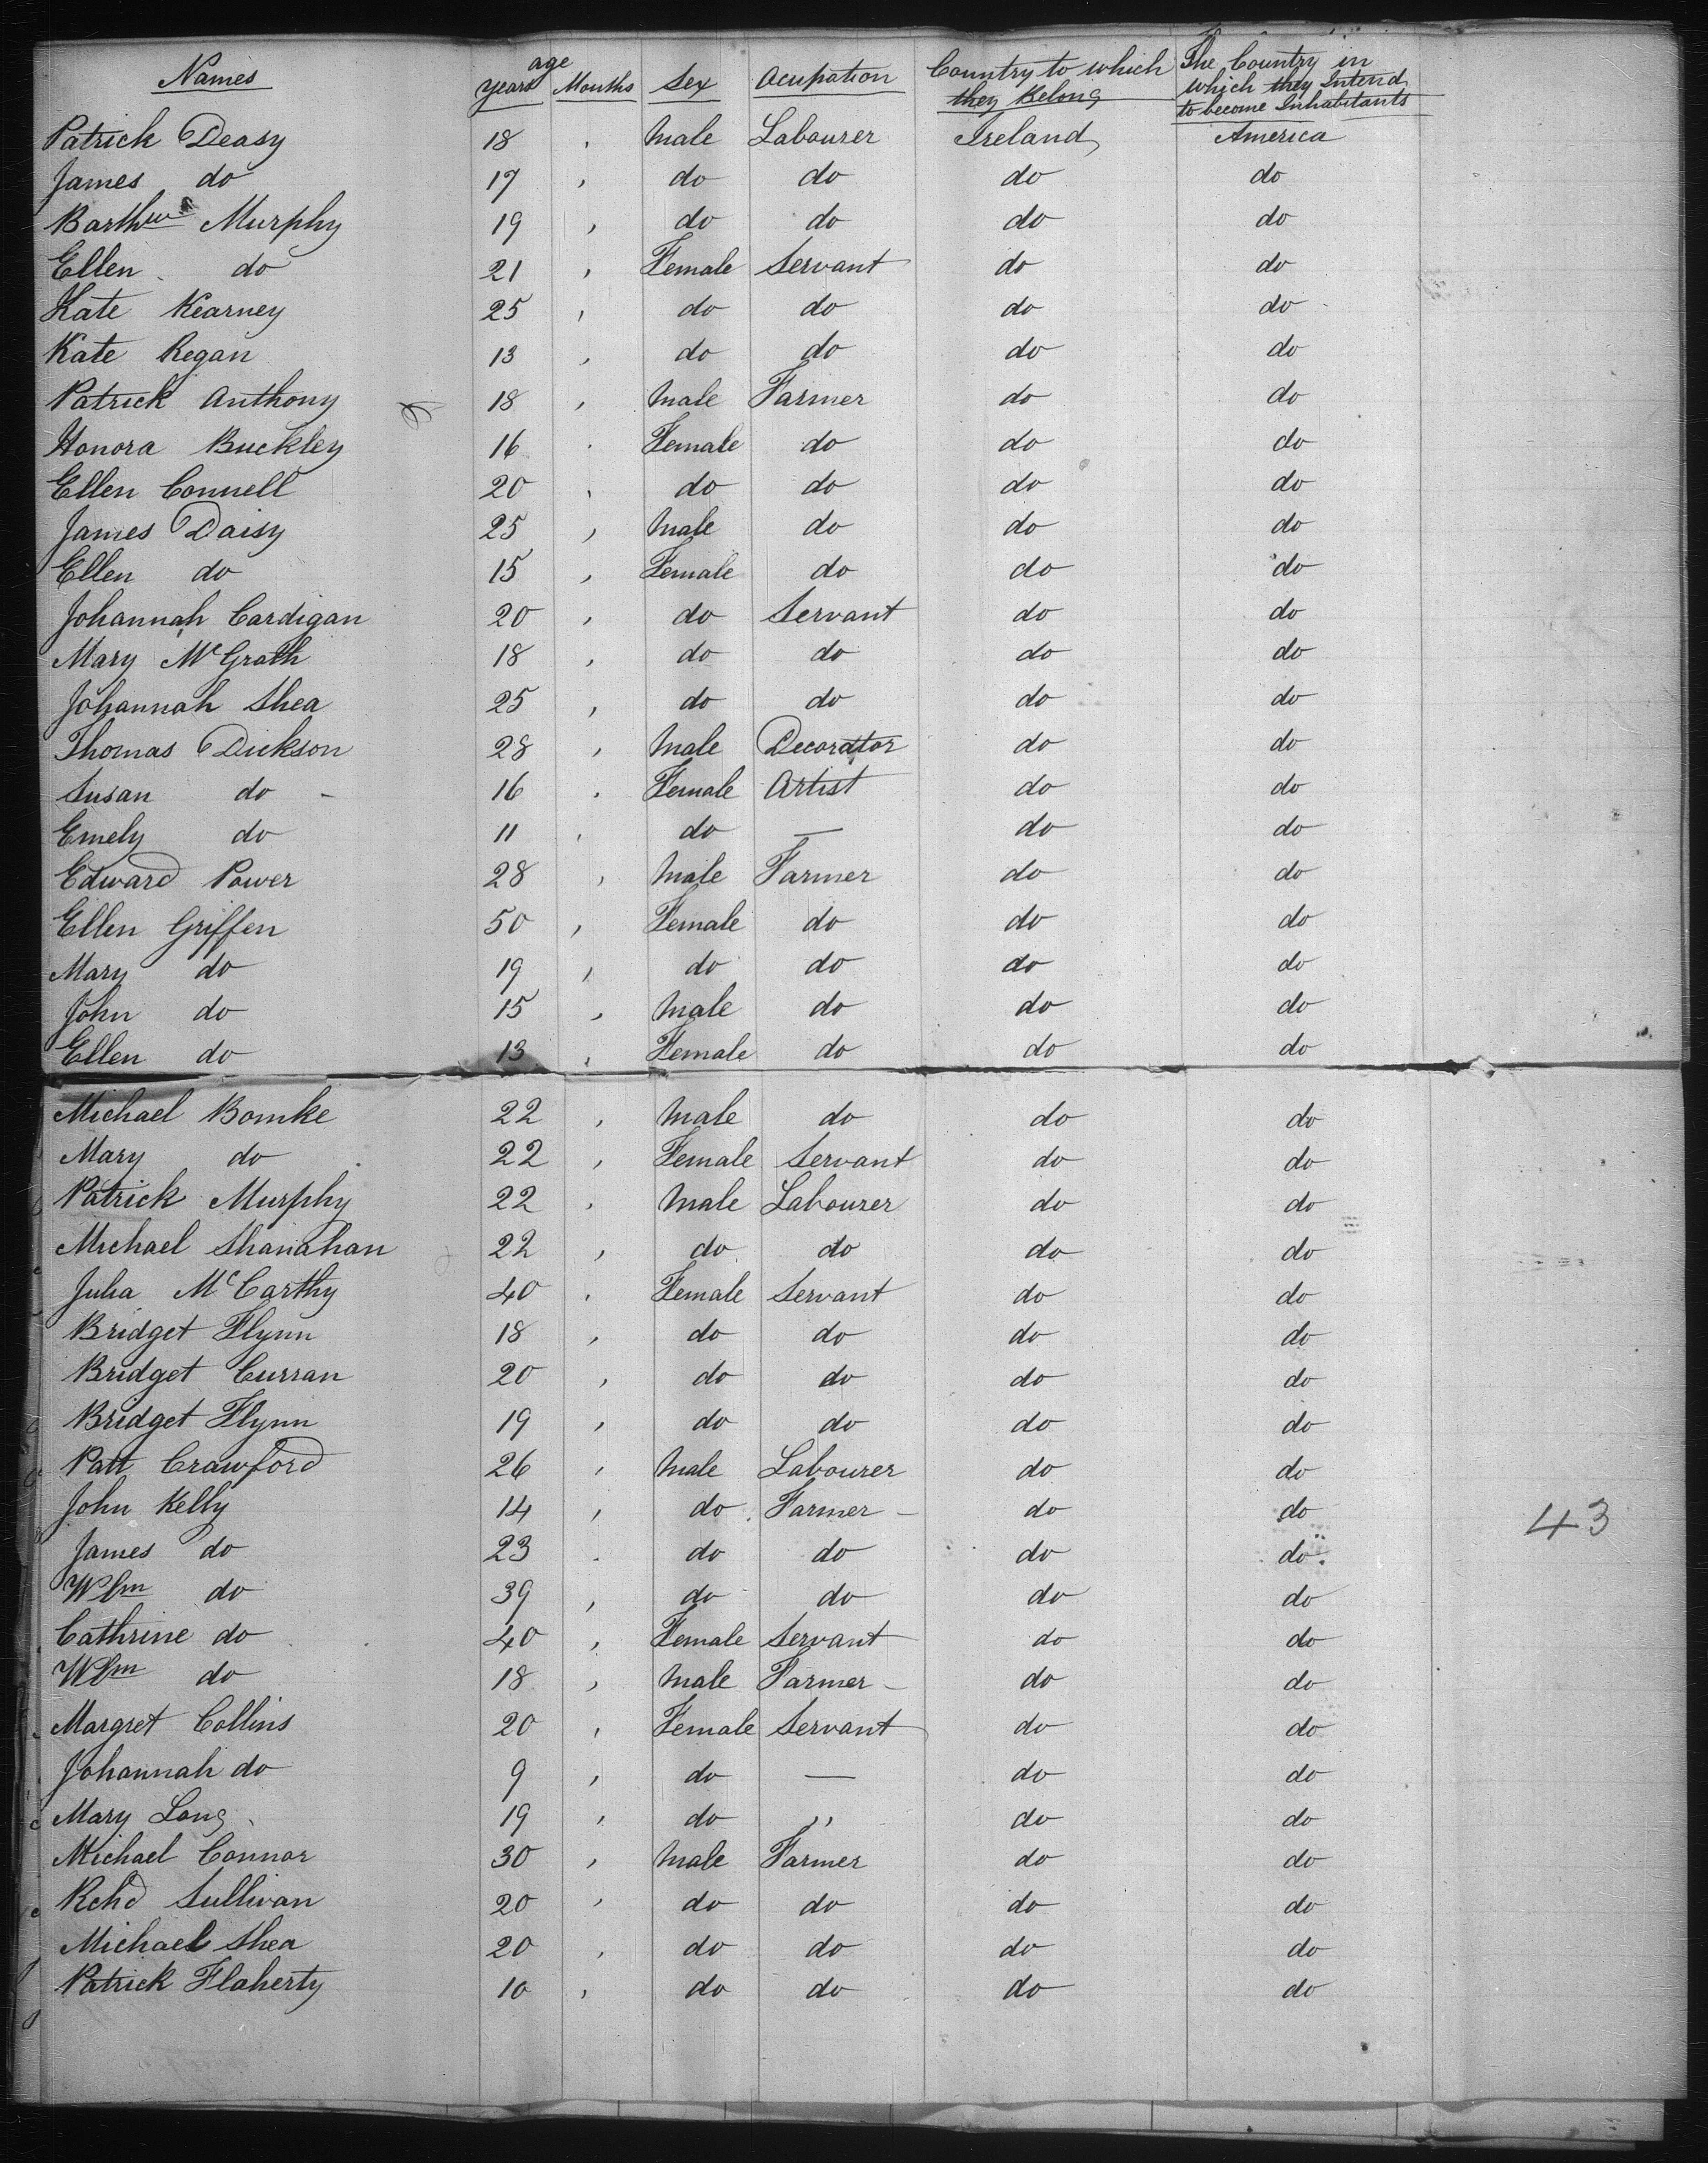 Names age years Months Sex Acupation Country to which they Belong The Country in which they Intend to become Inhabitants
Patrick Deasy 18 , Male Labourer Ireland America
James do 17 , do do do do
Barthw Murphy 19 , do do do do
Ellen do 21 , Female Servant do do
Kate Kearney 25 , do do do do
Kate Regan 13 , do do do do
Patrick Anthony 18 , Male Farmer do do
Honora Buckley 16 . Female do do do
Ellen Connell 20 , do do do do
James Daisy 25 , Male do do do
Ellen do 15 , Female do do do
Johannah Cardigan 20 , do Servant do do
Mary McGrath 18 , do do do do
Johannah Shea 25 , do do do do
Thomas Dickson 28 , Male Decorator do do
Susan do - 16 . Female Artist do do
Emely do 11 , do — do do
Edward Power 28 , Male Farmer do do
Ellen Griffen 50 , Female do do do
Mary do 19 , do do do do
John do 15 , Male do do do
Ellen do 13 , Female do do do
Michael Bomke 22 , Male do do do
Mary do 22 , Female Servant do do
Patrick Murphy 22 , Male Labourer do do
Michael Shanahan 22 , do do do do
Julia McCarthy 40 . Female Servant do do
Bridget Flynn 18 , do do do do
Bridget Curran 20 , do do do do
Bridget Flynn 19 , do do do do
Patt Crawford 26 , Male Labourer do do
John Kelly 14 , do Farmer - do do
43
James do 23 . do do do do
Wlm do 39 , do do do do
Cathrine do 40 , Female Servant do do
Wlm do 18 , Male Farmer - do do
Margret Collins 20 , Female Servant do do
Johannah do 9 , do — do do
Mary Long 19 , do ,, do do
Michael Connor 30 , Male Farmer do do
Rchd Sullivan 20 , do do do do
Michael Shea 20 , do do do do
Patrick Flaherty 10 , do do do do